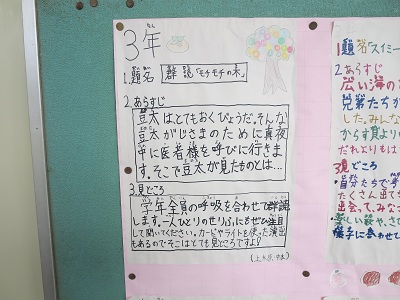 3年
1.題名 群読「モチモチの木」
2.あらすじ
豆太はとてもおくびょうだ。そんな
豆太がじさまのために真夜
中に医者様を呼びに行きま
す。そこで豆太が見たものとは…
3.見どころ
学年全員の呼吸を合わせて群読
します。一人ひとりのせりふにもぜひ注目
して聞いてください。カードやライトを使った演出
もあるのでそこはとても見どころですよ!
1題名「スイミー
2あらすじ
広い海の
兄弟たちが
した。みんな
からす貝より
だれよりもは
3見どころ
・自分たちで考
たくさん出て
出会って、みなさ